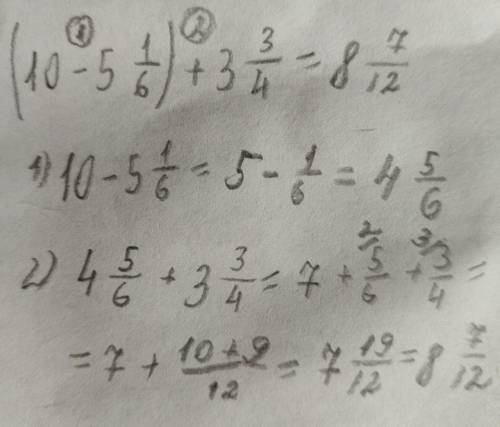 (10 - 5 1/6) + 3 3/4 = 8 7/12
1) 10 - 5 1/6 = 5 - 1/6 = 4 5/6
2) 4 5/6 + 3 3/4 = 7 + 2/ 5/6 + 3/ 3/4 =
= 7 + (10 + 9)/12 = 7 19/12 = 8 7/12